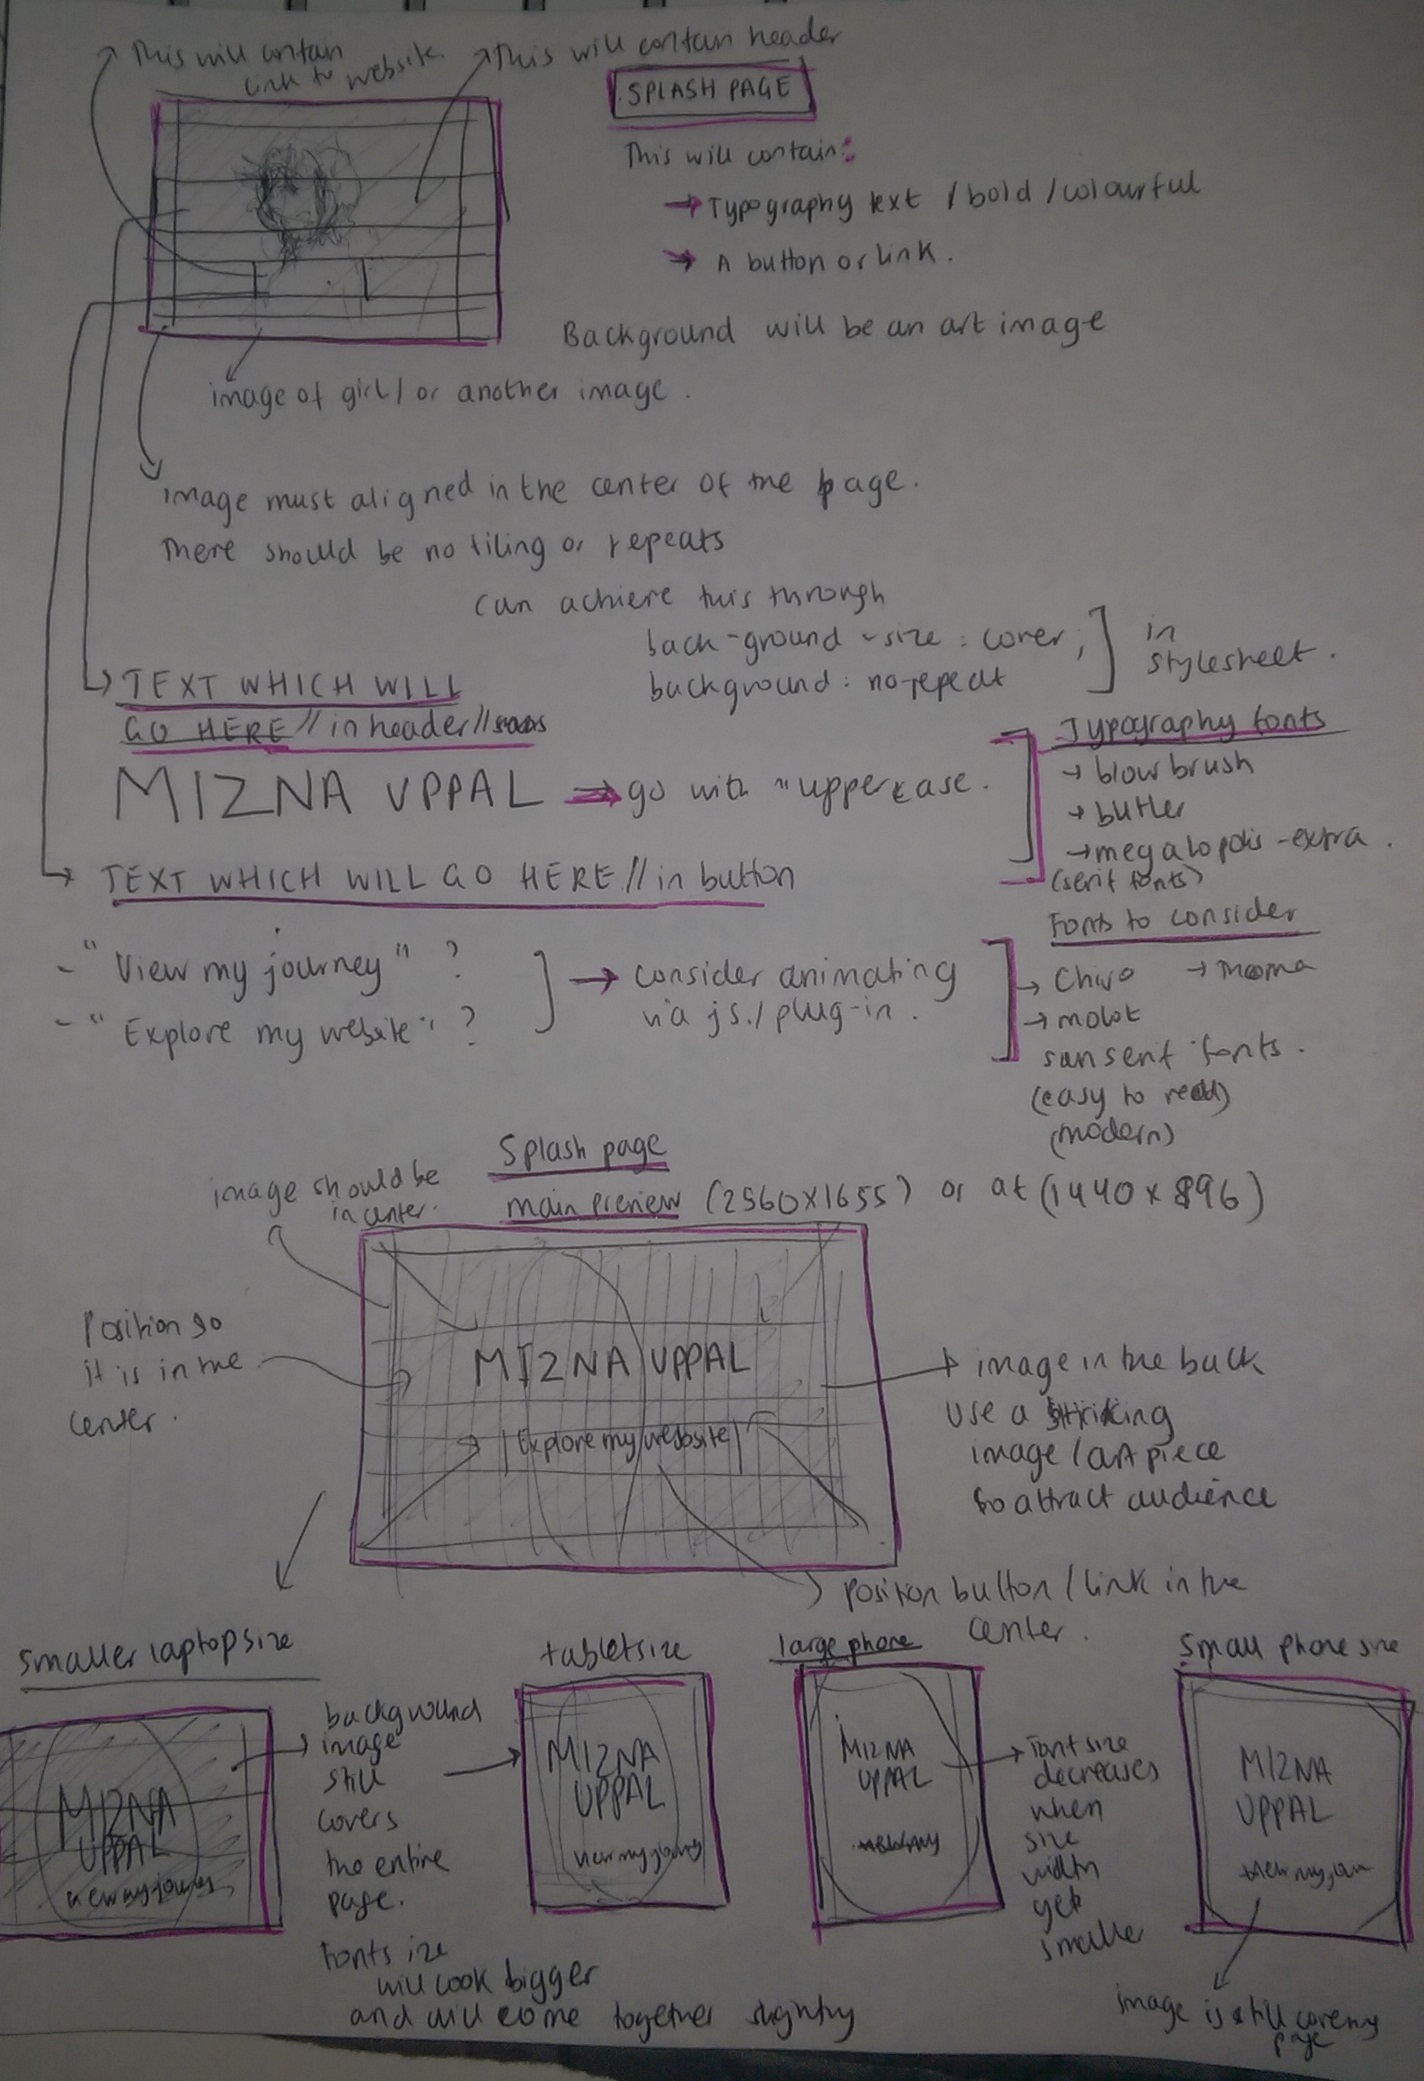 This will contain
link to website
This will contain header
SPLASH PAGE
This will contain:
→ Typography text / bold / colourful
→ A button or link.
Background will be an art image
image of girl / or another image.
image must aligned in the center of the page.
There should be no tiling or repeats
can achieve this through
back-ground-size: cover;
background: no-repeat
in
stylesheet.
TEXT WHICH WILL
GO HERE // in header //
MIZNA UPPAL → go with "uppercase.
Typography fonts
→ blowbrush
→ butler
→ megalopolis-extra.
(serif fonts)
TEXT WHICH WILL GO HERE // in button
- "View my journey" ?
- "Explore my website" ?
→ consider animating
via js. / plug-in.
Fonts to consider
→ Chivo
→ molot
san serif fonts.
(easy to read)
(modern)
Splash page
main preview (2560x1655) or at (1440x896)
image should be
in center.
Position so
it is in the
center.
MIZNA UPPAL
Explore my website
image in the back
use a striking
image / art piece
to attract audience
position button / link in the
center.
smaller laptop size
MIZNA
UPPAL
view my journey
background
image
still
covers
the entire
page.
Font size
will look bigger
and will come together slightly
tablet size
MIZNA
UPPAL
view my journey
large phone
MIZNA
UPPAL
Font size
decreases
when
size
width
gets
smaller
small phone size
MIZNA
UPPAL
view my
image is still covering
page